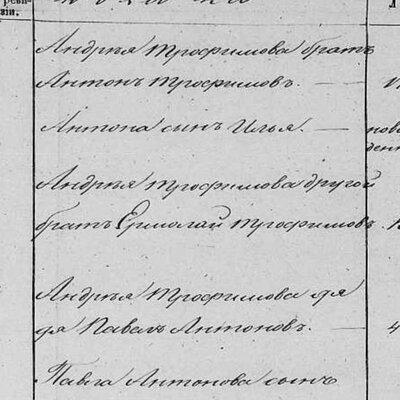 реви-
зіи.
Андрея Трофимова братъ
Антонъ Трофимовъ. —
Антона сынъ Илья. — ново
денн
Андрея Трофимова другой
братъ Ермолай Трофимовъ
Андрея Трофимова дя
дя Павелъ Антоновъ. — 4
Павла Антонова сынъ